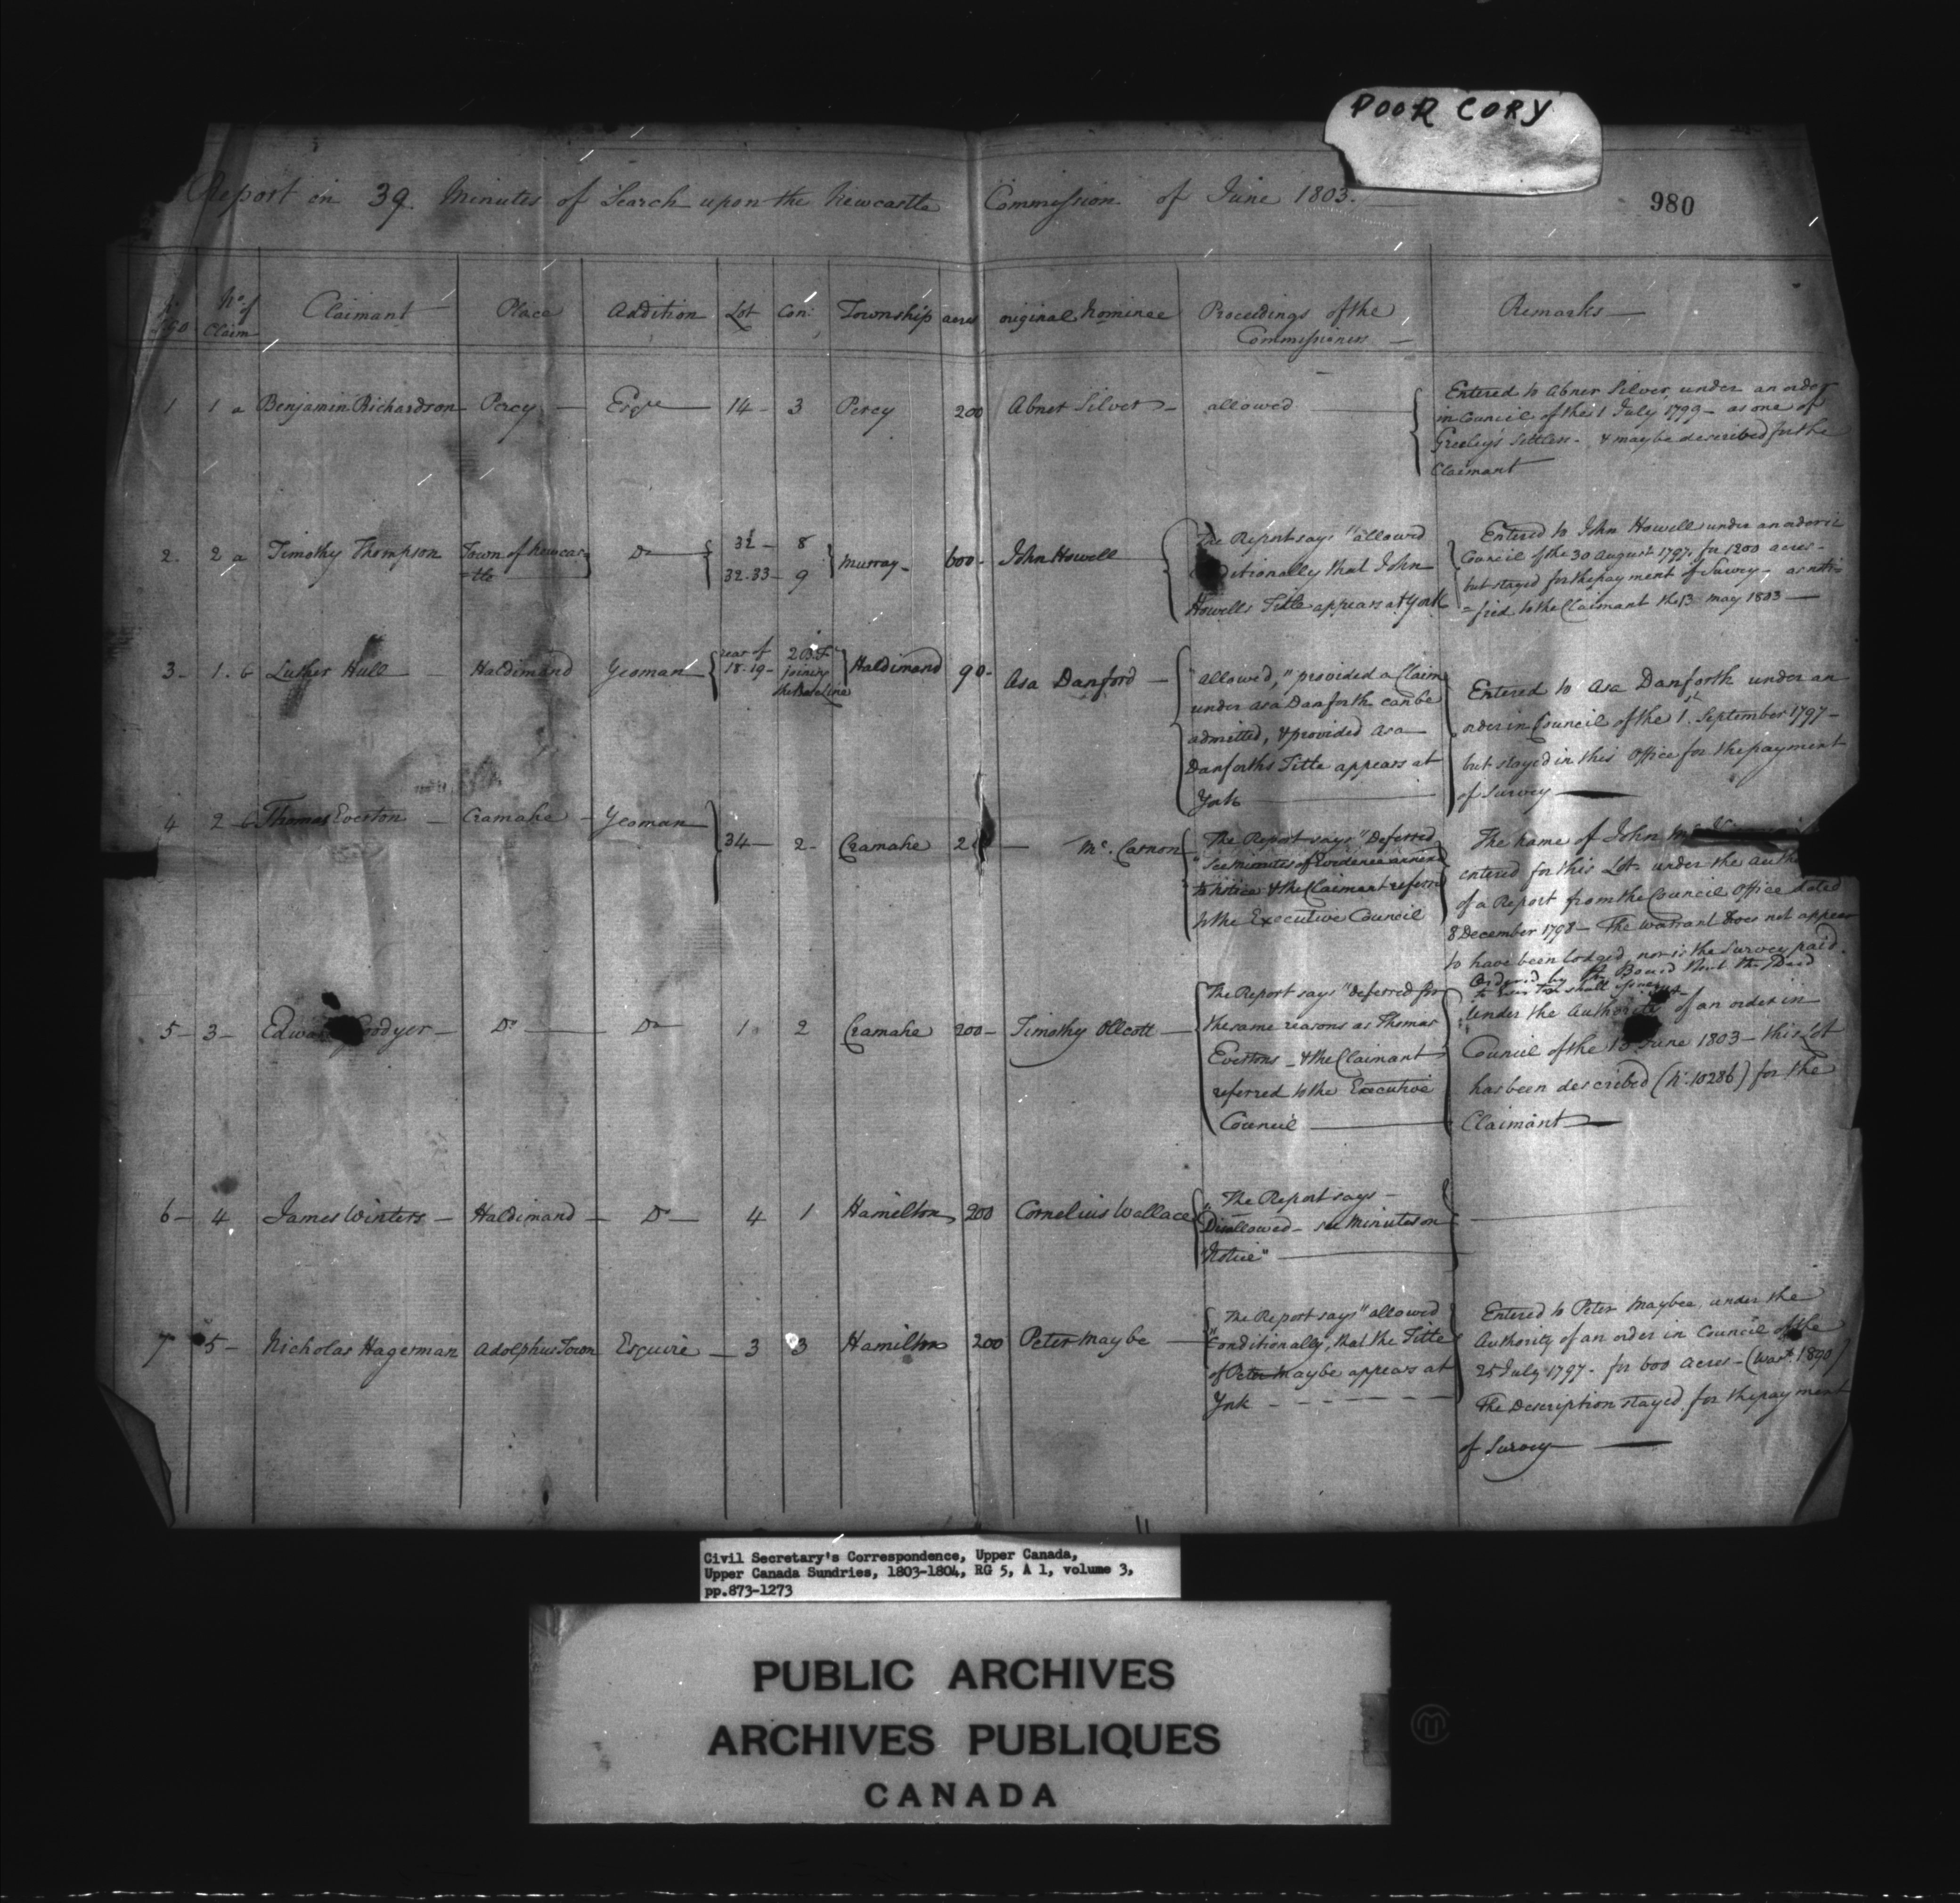 POOR COPY
Report on 39 Minutes of Search upon the Newcastle Commission of June 1803.
980
No. of Claim
Claimant
Place
Addition
Lot
Con:
Township
acres
original Nominee
Proceedings of the
Commissioners
Remarks
1 1 a Benjamin Richardson Percy Esqre 14 - 3 Percy 200 Abner Silver - allowed
Entered to Abner Silver, under an order
in Council of the 1 July 1799 - as one of
Greeley's Settlers - & may be described for the
Claimant
2. 2 a Timothy Thompson Town of Newcas
=tle Do
32 - 8
32.33 - 9
Murray - 600 - John Howell
The Report says "allowed
ditionally that John
Howells Title appears at York
Entered to John Howell under an order in
Council of the 30 August 1797, for 1200 acres -
but stayed for the payment of Survey - as noti
=fied to the Claimant the 13 May 1803
3 - 1. 6 Luther Hull Haldimand Yeoman
rear of
18.19 -
2 B.F
joining
the Base Line
Haldimand 90 - Asa Danford
"allowed," provided a Claim
under asa Danforth can be
admitted, & provided Asa
Danforths Title appears at
York
Entered to Asa Danforth under an
order in Council of the 1st September 1797 -
but stayed in this Office for the payment
of Survey
4 2 - 6 Thomas Everton Cramahe - Yeoman
34 - 2 - Cramahe 2 Mc. Carnon
The Report says "Deferred
"See minutes of Evidence annexed
to notice & the Claimant referred
to the Executive Council
The name of John Mc
entered for this Lot under the
of a Report from the Council Office dated
8 December 1798 - The Warrant does not appear
to have been lodged, nor is the Survey paid.
Ordered by the Board that the Deed
shall
5 - 3 - Edwa Goodyer - Do Do 1 2 Cramahe 200 - Timothy Ollcott
The Report says "deferred for
the same reasons as Thomas
Evertons - & the Claimant
referred to the Executive
Council
Under the Authority of an order in
Council of the June 1803 - this Lot
has been described (N. 10286) for the
Claimant
6 - 4 James Winters - Haldimand - Do - 4 1 Hamilton 200 Cornelius Wallace
"The Report says -
Disallowed - see minutes on
"Notice"
7 5 - Nicholas Hagerman Adolphus Town Esquire - 3 3 Hamilton 200 Peter Maybe
The Report says "allowed
"Conditionally, that the Title
of Peter Maybe appears at
York
Entered to Peter Maybee, under the
Authority of an order in Council of the
25 July 1797 - for 600 acres - (Wart. 1890)
The Description stayed for the payment
of Survey
Civil Secretary's Correspondence, Upper Canada,
Upper Canada Sundries, 1803-1804, RG 5, A 1, volume 3,
pp.873-1273
PUBLIC ARCHIVES
ARCHIVES PUBLIQUES
CANADA